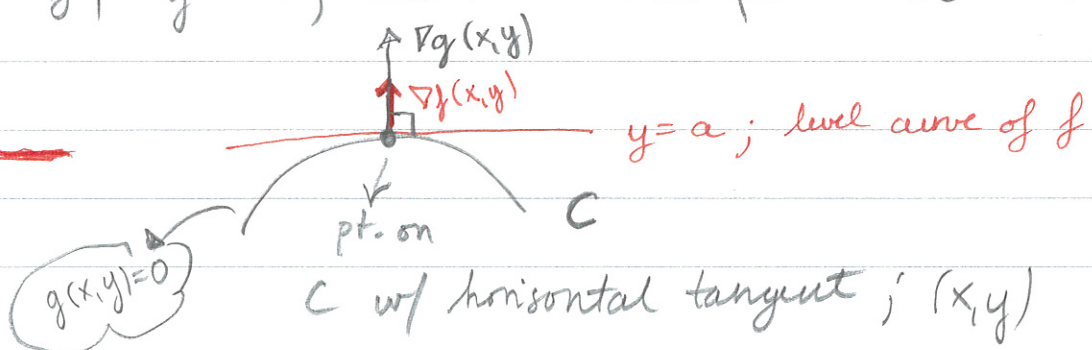 ∇g(x,y)
∇f(x,y)
y=a ; level curve of f
C
pt. on
g(x,y)=0
C w/ horisontal tangent ; (x,y)